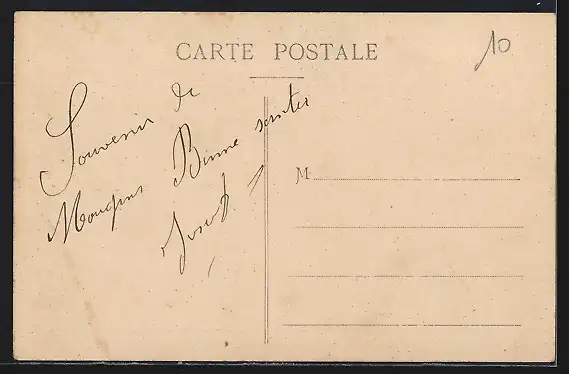 CARTE POSTALE
10
Souvenir de
Mougins Bonne santée
Joseph
M